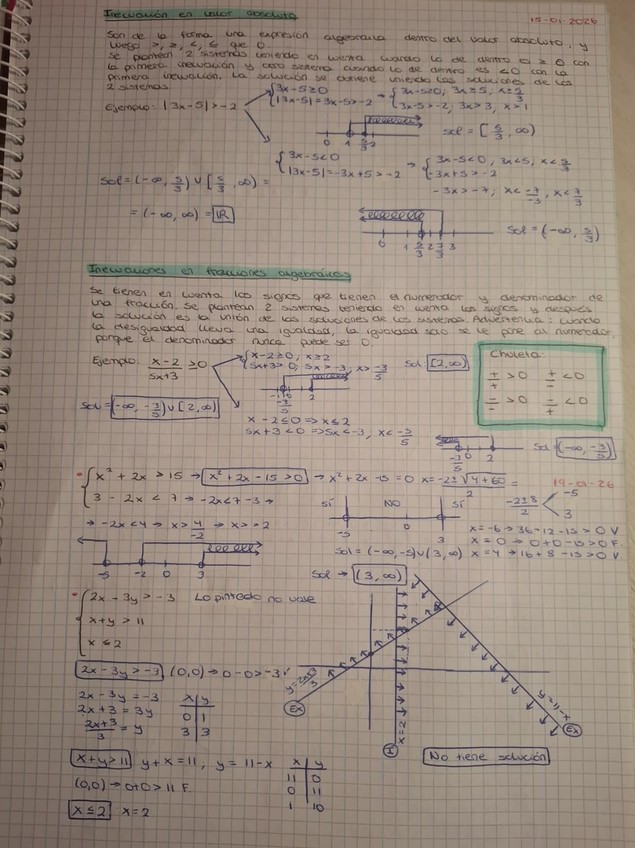 Inecuación en valor absoluto
15-01-2026
Son de la forma una expresión algebraica dentro del valor absoluto, y
luego >, ≥, <, ≤ que 0
Se plantean 2 sistemas teniendo en cuenta cuando lo de dentro es ≥ 0 con
la primera inecuación y otro sistema cuando lo de dentro es <0 con la
primera inecuación. La solución se obtiene uniendo las soluciones de los
2 sistemas.
Ejemplo: |3x-5|>-2
3x-5≥0
|3x-5|=3x-5>-2
→ 3x-5≥0; 3x≥5, x≥5/3
3x-5>-2, 3x>3, x>1
0 1 5/3 2
sol = [5/3, ∞)
3x-5<0
|3x-5|=-3x+5>-2
→ 3x-5<0, 3x<5, x<5/3
-3x+5>-2
-3x>-7; x<-7/-3, x<7/3
Sol=(-∞, 5/3) ∪ [5/3, ∞) =
= (-∞, ∞) = ℝ
0 1 5/3 2 7/3 3
Sol=(-∞, 5/3)
Inecuaciones en fracciones algebraicas
Se tienen en cuenta los signos que tienen el numerador y denominador de
una fracción. Se plantean 2 sistemas teniendo en cuenta los signos y después
la solución es la unión de las soluciones de los sistemas. Advertencia: cuando
la desigualdad lleva una igualdad, la igualdad solo se le pone al numerador,
porque el denominador nunca puede ser 0
Ejemplo: x-2/5x+3 ≥0
x-2≥0; x≥2
5x+3>0; 5x>-3, x>-3/5
Sol [2,∞)
-1 -3/5 0 2
Sol=(-∞, -3/5) ∪ [2, ∞)
x-2≤0 => x≤2
5x+3<0 => 5x<-3, x<-3/5
-3/5 0 2
Sol=(-∞, -3/5)
Chuleta:
+/+ >0 +/- <0
-/- >0 -/+ <0
19-01-26
x²+2x>15 → x²+2x-15>0 → x²+2x-15=0 x=-2±√4+60/2 =
-2±8/2 -5
3
3-2x<7 → -2x<7-3 →
→ -2x<4 → x>4/-2 → x>-2
SÍ NO SÍ
-5 0 3
x=-6→36-12-15>0 V.
x=0 → 0+0-15>0 F.
x=4→16+8-15>0 V
Sol=(-∞,-5)∪(3,∞)
-5 -2 0 3
Sol → (3,∞)
2x-3y>-3 Lo pintado no vale
x+y>11
x≤2
2x-3y>-3, (0,0)→0-0>-3✓
2x-3y=-3
2x+3=3y
2x+3/3=y
x y
0 1
3 3
x+y>11 y+x=11, y=11-x
(0,0)→0+0>11 F.
x y
11 0
0 11
1 10
x≤2 x=2
y=2x+3/3
Ex
x=2
I
y=11-x
Ex
No tiene solución